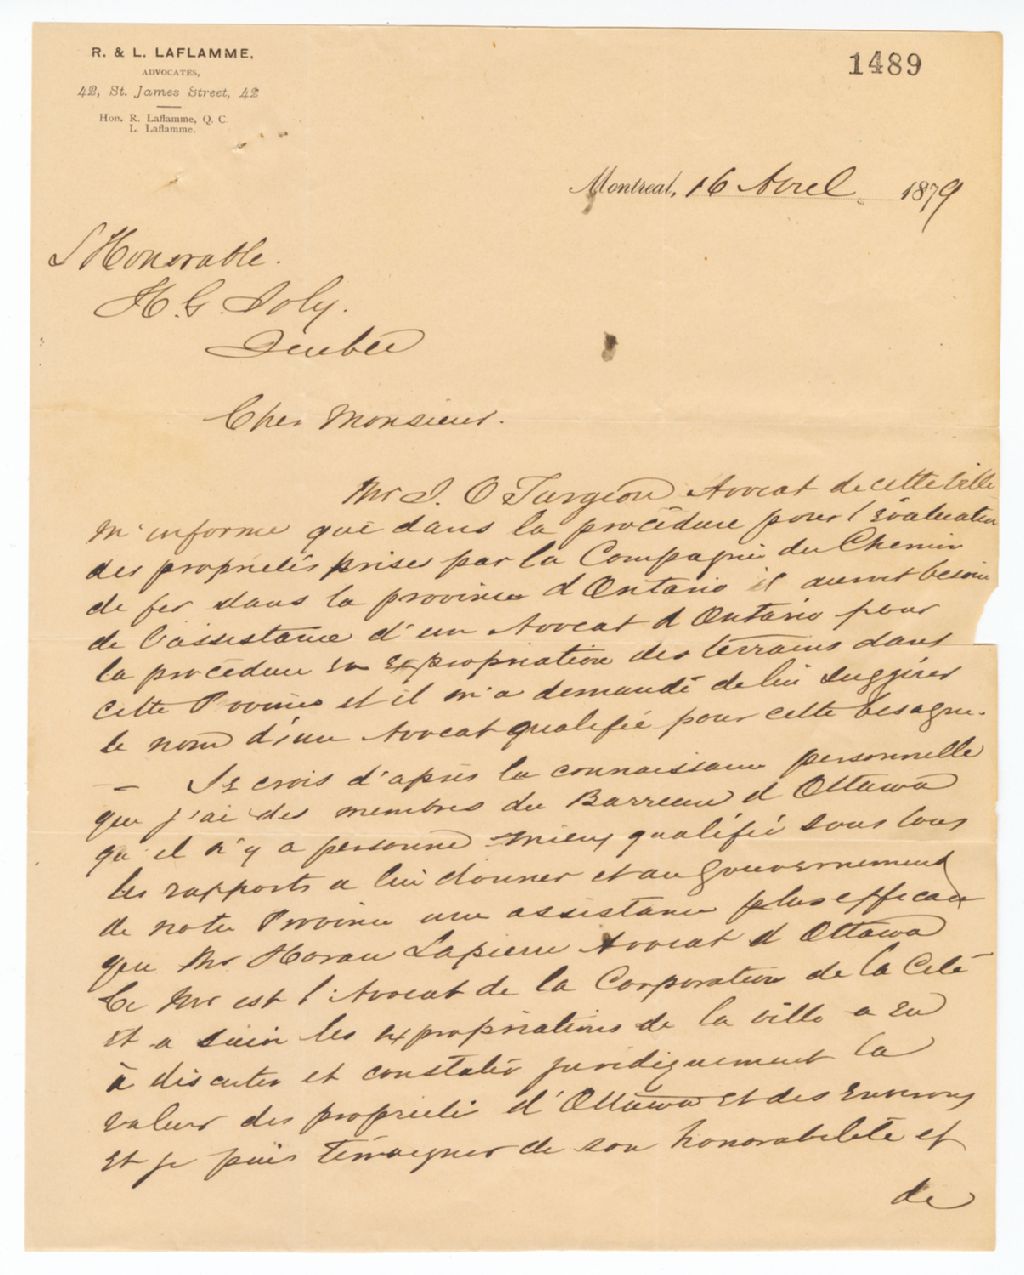 R. & L. LAFLAMME.
ADVOCATES,
42, St. James Street, 42
Hon. R. Laflamme, Q. C.
L. Laflamme.
1489
Montreal, 16 Avril 1879
L'Honorable
H. G. Joly.
Quebec
Cher Monsieur.
Mr J. O Turgeon Avocat de cette ville
m'informe que dans la procédure pour l'évaluation
des propriétés prises par la Compagnie du Chemin
de fer dans la province d'Ontario il aurait besoin
de l'assistance d'un Avocat d'Ontario pour
la procédure en expropriation des terrains dans
cette Province et il m'a demandé de lui suggérer
le nom d'un Avocat qualifié pour cette besogne.
— Je crois d'après la connaissance personnelle
que j'ai des membres du Barreau d'Ottawa
qu'il n'y a personne mieux qualifié sous tous
les rapports a lui donner et au Gouvernement
de notre Province une assistance plus efficace
que Mr Lapierre Avocat d'Ottawa
Ce Mr est l'Avocat de la Corporation de la Cité
et a suivi les expropriations de la ville a eu
à discuter et constater juridiquement la
valeur des propriétés d'Ottawa et des environs
et je puis témoigner de son honorabilité et
de